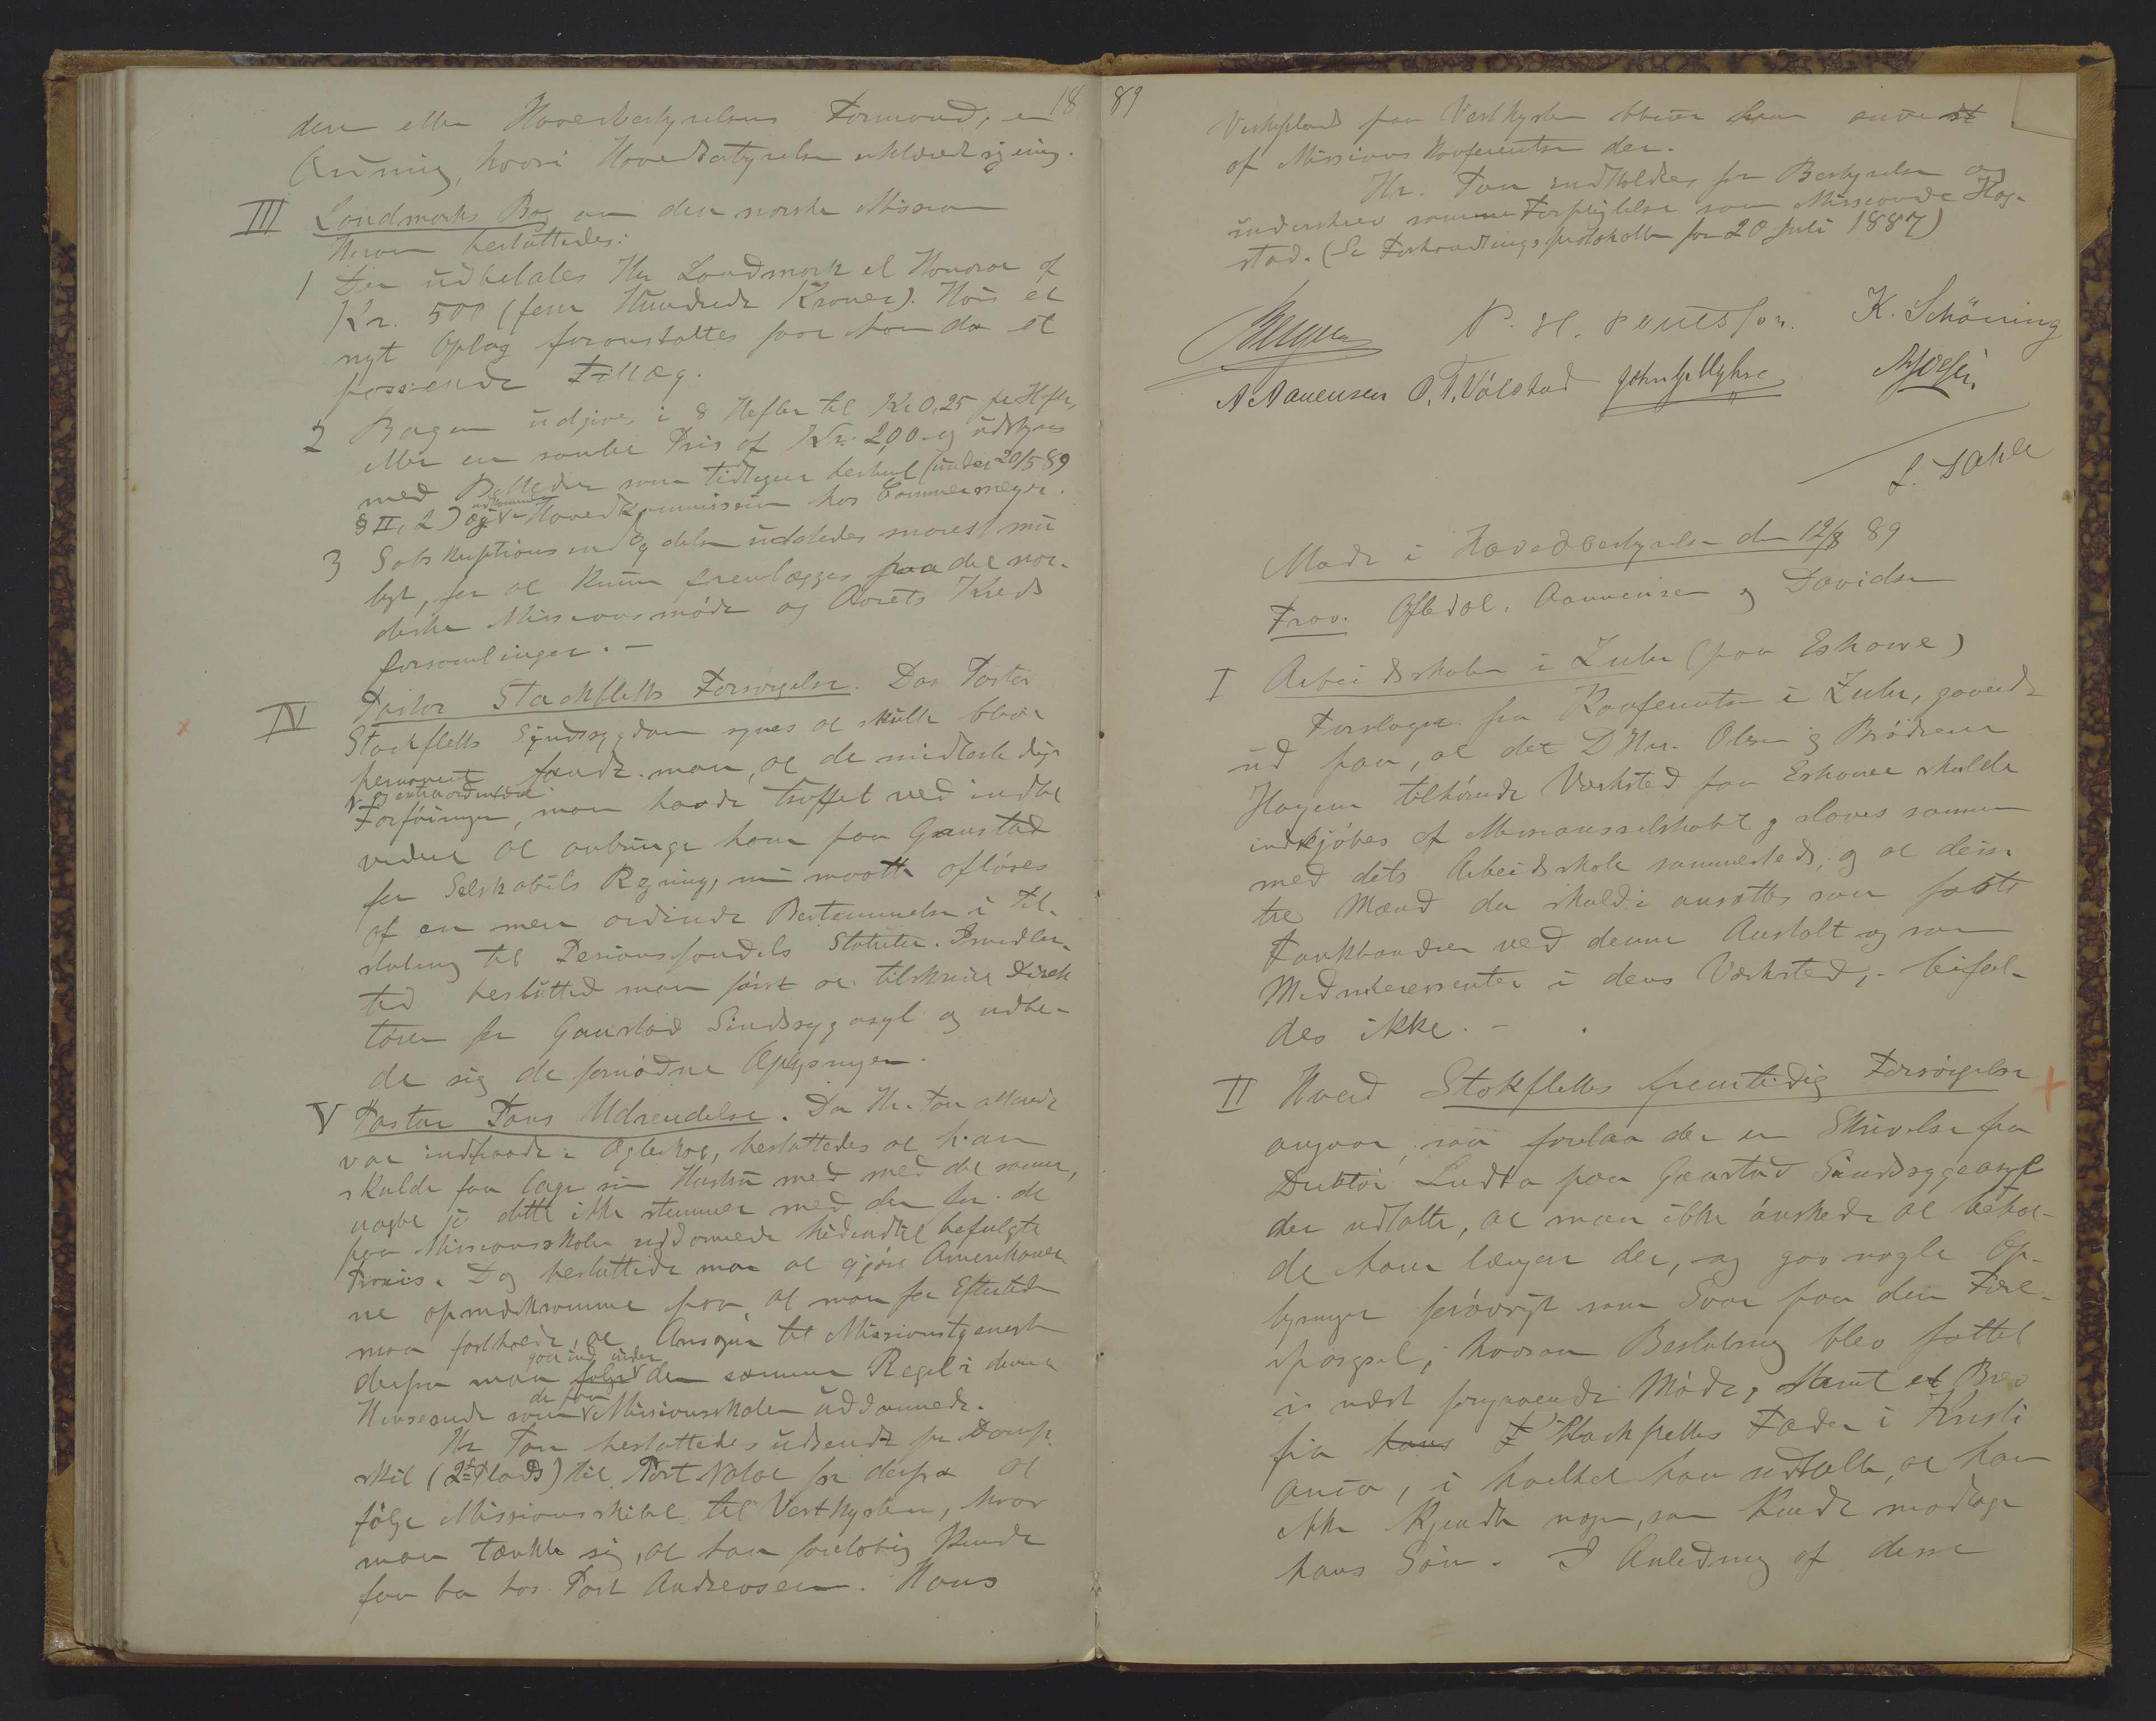 18
den eller Hovedbestyrelsens Formand, en
Ordning, hvori Hovedbestyrelsen erklæred sig enig.
III Landmarks Bog om den norske Mission
Herom besluttedes:
1 Der udbetales Hr Landmark et Honorar af
Kr. 500 (fem Hundrede Kroner). Hvis et
nyt Oplag foranstaltes faar han da et
passende Tillæg.
2 Bogen udgives i 8 Hefter til Kr 0,25 pr Hefte,
eller en samlet Pris af Kr. 2,00 og udstyres
med Billeder som tidligere bestemt (under 20/5 89
§ II, 2) og udkommer i Hovedkommission hos Cammermeyer.
3 Subskriptionsindbydelse uddeles snarest mu
ligt, for at kunne fremlægges paa det nor-
diske Missionsmøde og Aarets Kreds
forsamlinger. -
IV Pastor Stockfleths Forsørgelse. Da Pastor
Stockfleths Sindssygdom synes at skulle blive
permanent fandt man, at de midlertidige
og extraordinære
Forføininger, man havde truffet ved indtil
videre at anbringe ham paa Gaustad
for Selskabets Regning, nu maatte afløses
af en mere ordinær Bestemmelse i Til-
slutning til Pensionsfondets Statuter. Imidler-
tid besluttede man først at tilskrive Direk
tøren for Gaustad Sindssygeasyl og udbe-
de sig de fornødne Oplysninger.
V Pastor Tous Udsendelse. Da Hr. Tou allerede
var indtraadt i Ægteskab, besluttedes at han
skulde faa tage sin Hustru med med det samme,
uagtet jo dette ikke stemmer med den for de
paa Missionsskolen uddannede hidindtil befulgte
Praxis. Dog besluttede man at gjøre Amerikaner-
ne opmærksomme paa, at man for Eftertiden
maa fastholde, at Ansøgere til Missionstjeneste
gaa ind under
derfra maa følge den samme Regel i denne
de paa
Henseende som Missionsskolen uddannede.
Hr Tou besluttedes udsendt pr Damp-
skib (2den Plads) til Port Natal for derfra at
følge Missionsskibet til Vestkysten, hvor
man tænkte sig, at han foreløbig kunde
faa bo hos Past Andreassen. Hans
89
Virkeplads paa Vestkysten bliver ham anvist
af Missionskonferentsen der.
Hr. Tou indkaldtes for Bestyrelsen og
underskrev samme Forpligtelse som Missionær Hog-
stad. (Se Forhandlingsprotokollen for 20 Juli 1887)
K. Schöning
A Aanensen O. T. Válstad
L. Dahle
Møde i Hovedbestyrelsen den 12/8 89
Frav. Oftedal, Aannensen og Davidsen
I Arbeidsskolen i Zulu (paa Eshowe)
Forslaget fra Konferentsen i Zulu, gaaende
ud paa, at det D'Hrr. Olsen og Brødrene
Hagem tilhørende Værksted paa Eshowe skulde
indkjøbes af Missionsselskabet og slaaes sammen
med dets Arbeidsskole sammesteds, og at disse
tre Mænd da skulde ansættes som faste
Funktionærer ved denne Anstalt og som
Medinteressenter i dens Værksted, - bifal-
des ikke. -
II Hvad Stokfleths fremtidig Forsørgelse
angaar, saa forelaa der en Skrivelse fra
Direktør Lindbo paa Gaustad Sindssygeasyl
der udtalte, at man ikke ønskede at behol-
de ham længer der, og gav nogle Op-
lysninger forøvrigt som Svar paa den Fore-
spørgsel, hvorom Beslutning blev fattet
i næst foregaaende Møde, samt et Brev
fra hans F Stockfleths Fader i Kristi
ania, i hvilket han udtalte, at han
ikke kjendte nogen, som kunde modtage
hans Søn. I Anledning af disse